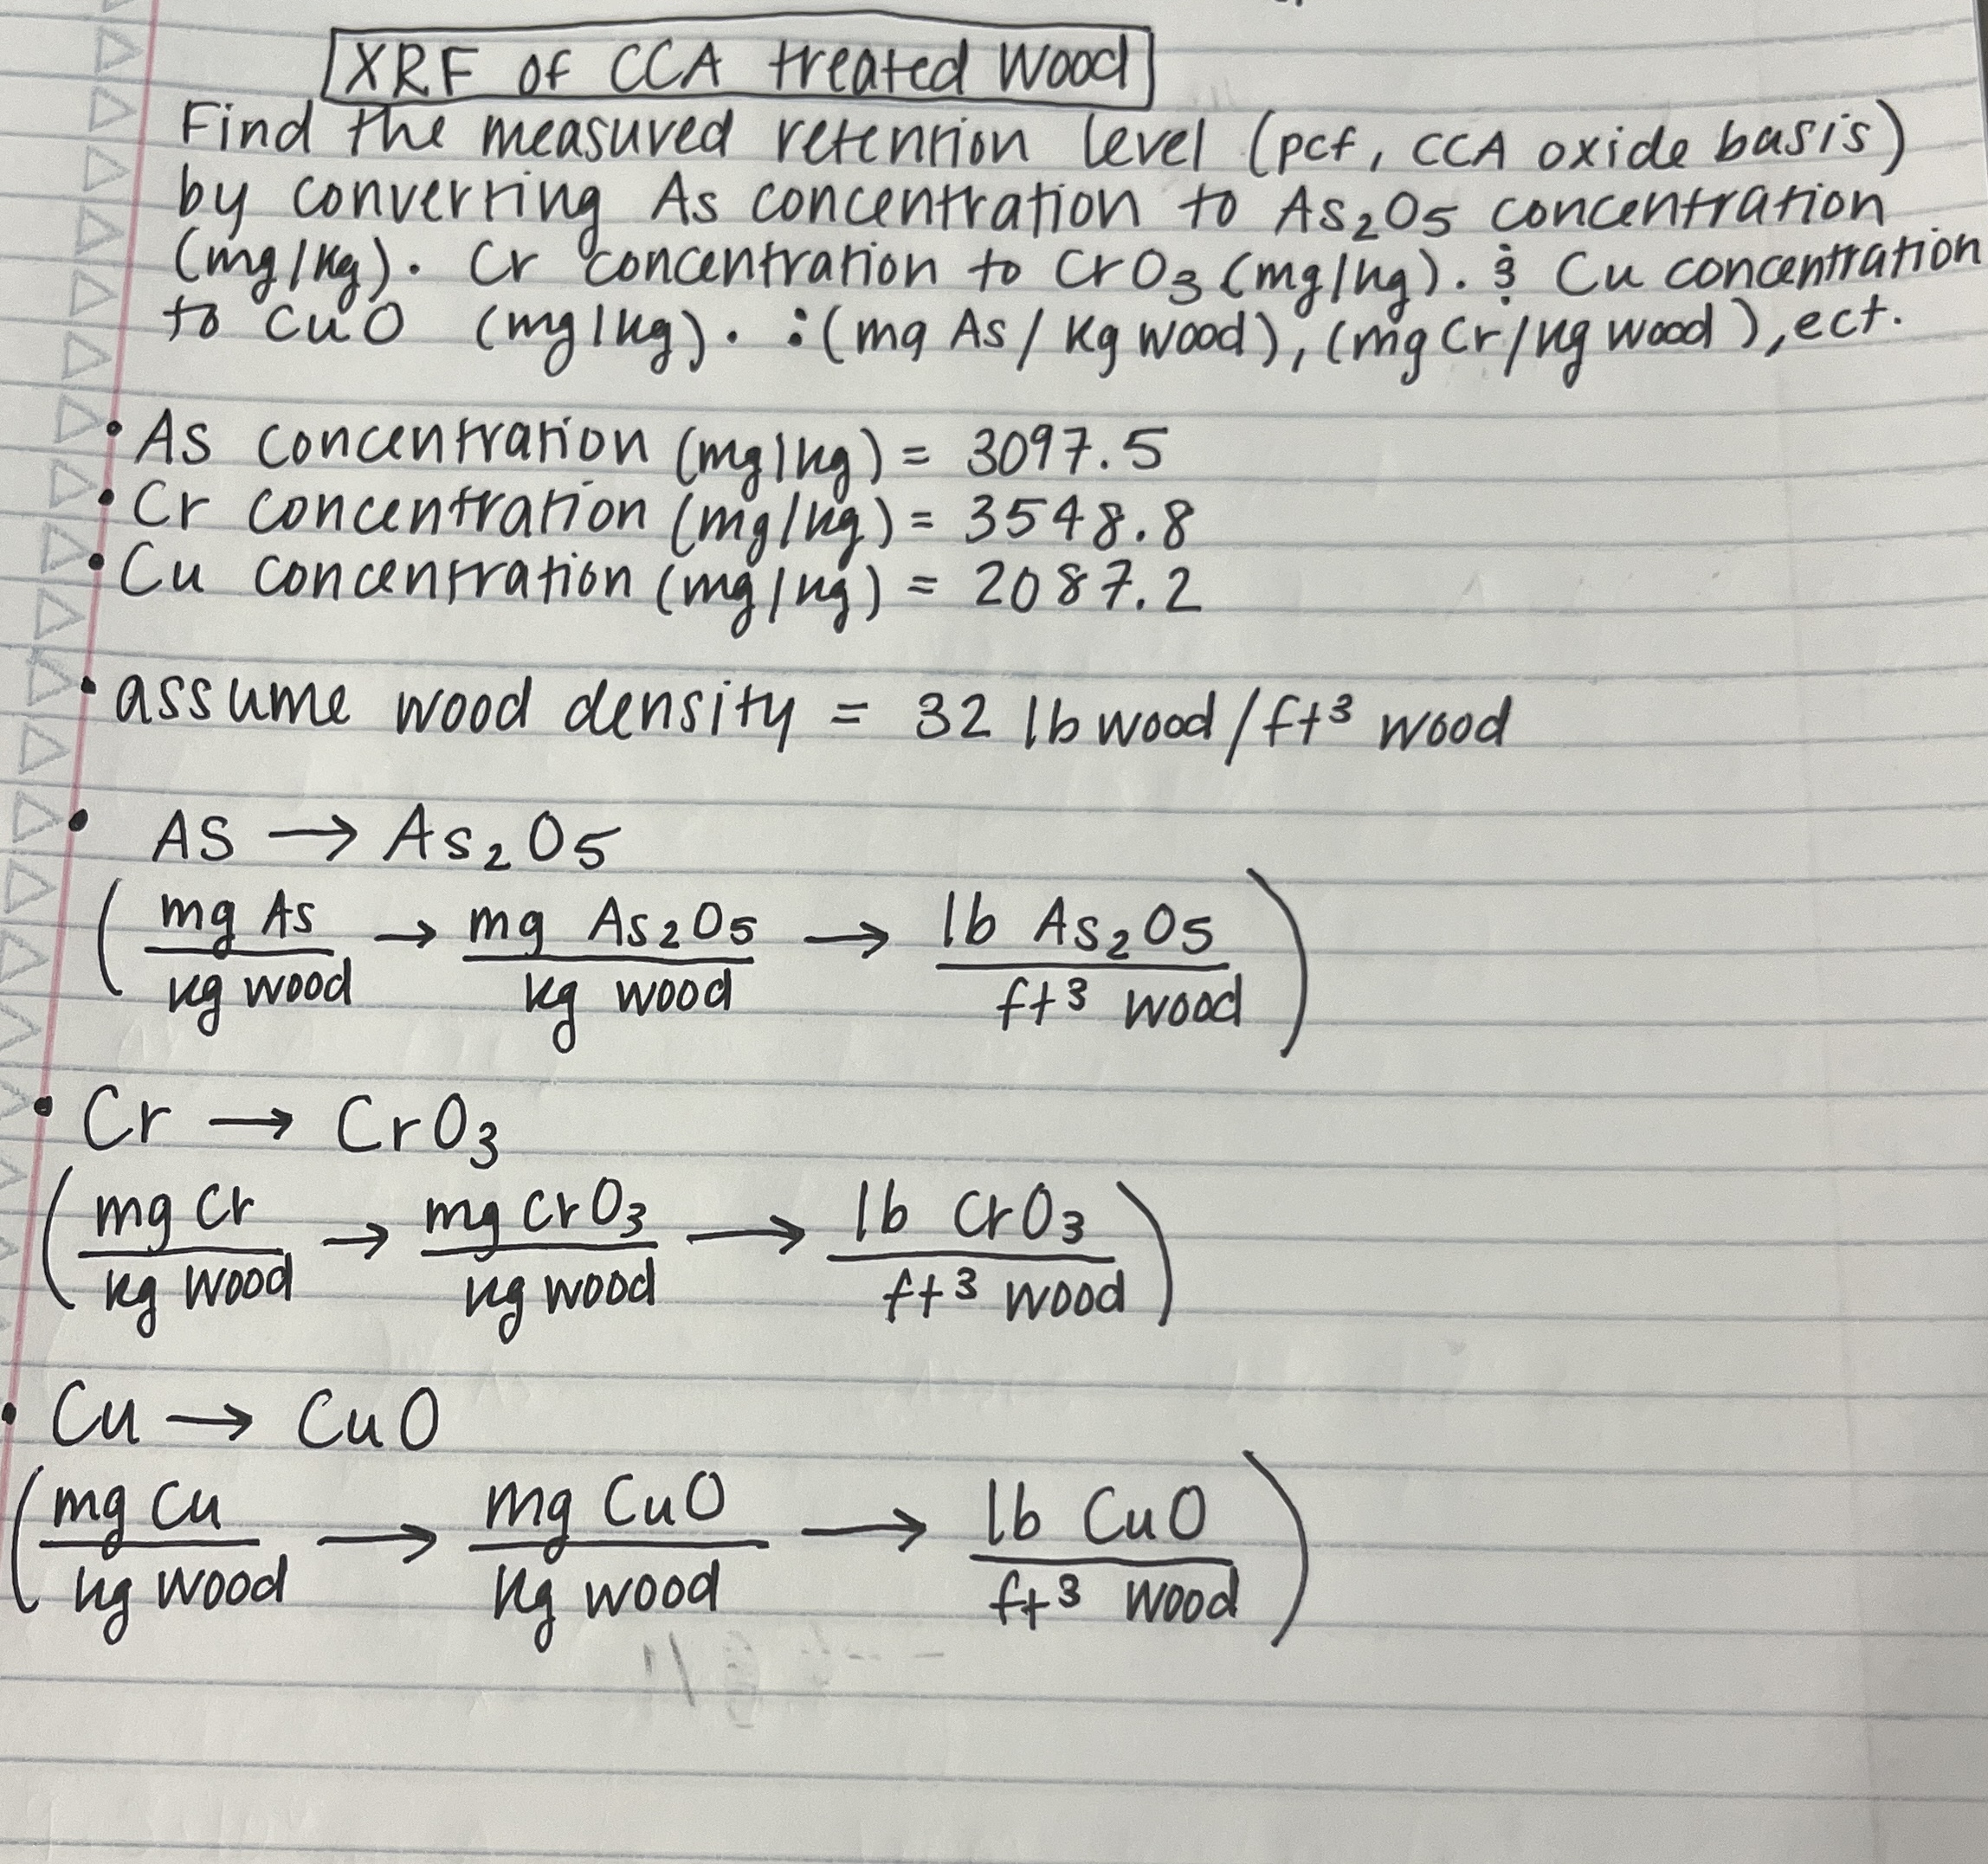 XRF of CCA treated Wood
Find the measured retention level (pcf, CCA oxide basis)
by converting As concentration to As₂O₅ concentration
(mg/kg). Cr concentration to CrO₃ (mg/kg). & Cu concentration
to CuO (mg/kg). : (mg As/kg wood), (mg Cr/kg wood), ect.
• As concentration (mg/kg) = 3097.5
• Cr concentration (mg/kg) = 3548.8
• Cu concentration (mg/kg) = 2087.2
• assume wood density = 32 lb wood/ft³ wood
• AS → As₂O₅
( mg As / kg wood → mg As₂O₅ / kg wood → lb As₂O₅ / ft³ wood )
• Cr → CrO₃
( mg Cr / kg wood → mg CrO₃ / kg wood → lb CrO₃ / ft³ wood )
• Cu → CuO
( mg Cu / kg wood → mg CuO / kg wood → lb CuO / ft³ wood )